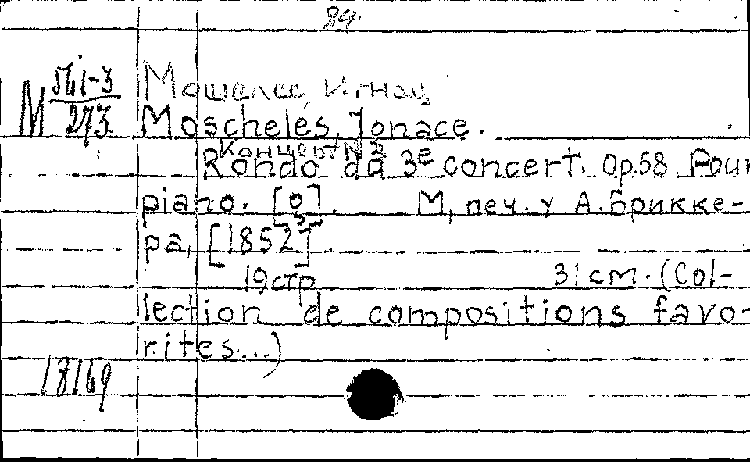 89.
М 541-3/273
Мошелес, Игнац
Moscheles, Ignace.
Концерт № 3
Rondo du 3e concert. Op.58 Pour
piano. [o].
М, печ. у А. Брикке-
ра, [1852]
19 стр 31 см. (Col-
lection de compositions favo-
rites...)
18169